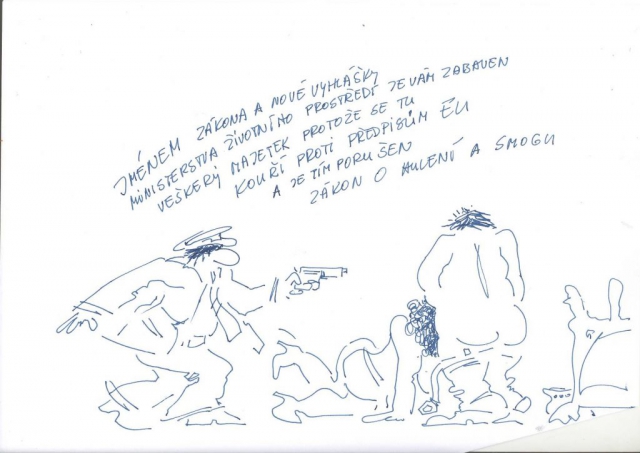 JMÉNEM ZÁKONA A NOVÉ VYHLÁŠKY
MINISTERSTVA ŽIVOTNÍHO PROSTŘEDÍ JE VÁM ZABAVEN
VEŠKERÝ MAJETEK PROTOŽE SE TU
KOUŘÍ PROTI PŘEDPISŮM EU
A JE TÍM PORUŠEN
ZÁKON O HULENÍ A SMOGU